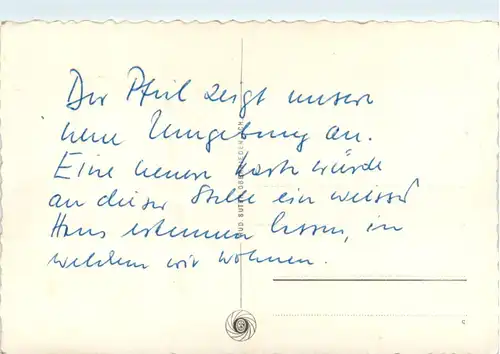 Der Pfeil zeigt unsere
neue Umgebung an.
Eine neuere Karte würde
an dieser Stelle ein weisses
Haus erkennen lassen, in
welchem wir wohnen.